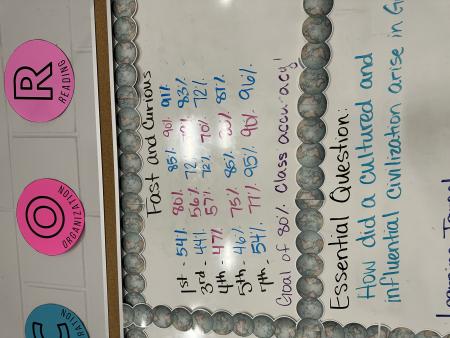 C
RATION
O
ORGANIZATION
R
READING
Fast and Curious
1st - 54% 80% 85% 90% 91%
3rd - 44% 56% 72% 83%
4th - 47% 57% 72% 70% 72%
5th - 46% 75% 85% 87%
7th - 54% 77% 95% 90% 96%
Goal of 80% Class accuracy!
Essential Question:
How did a cultured and
influential civilization arise in G
Learning